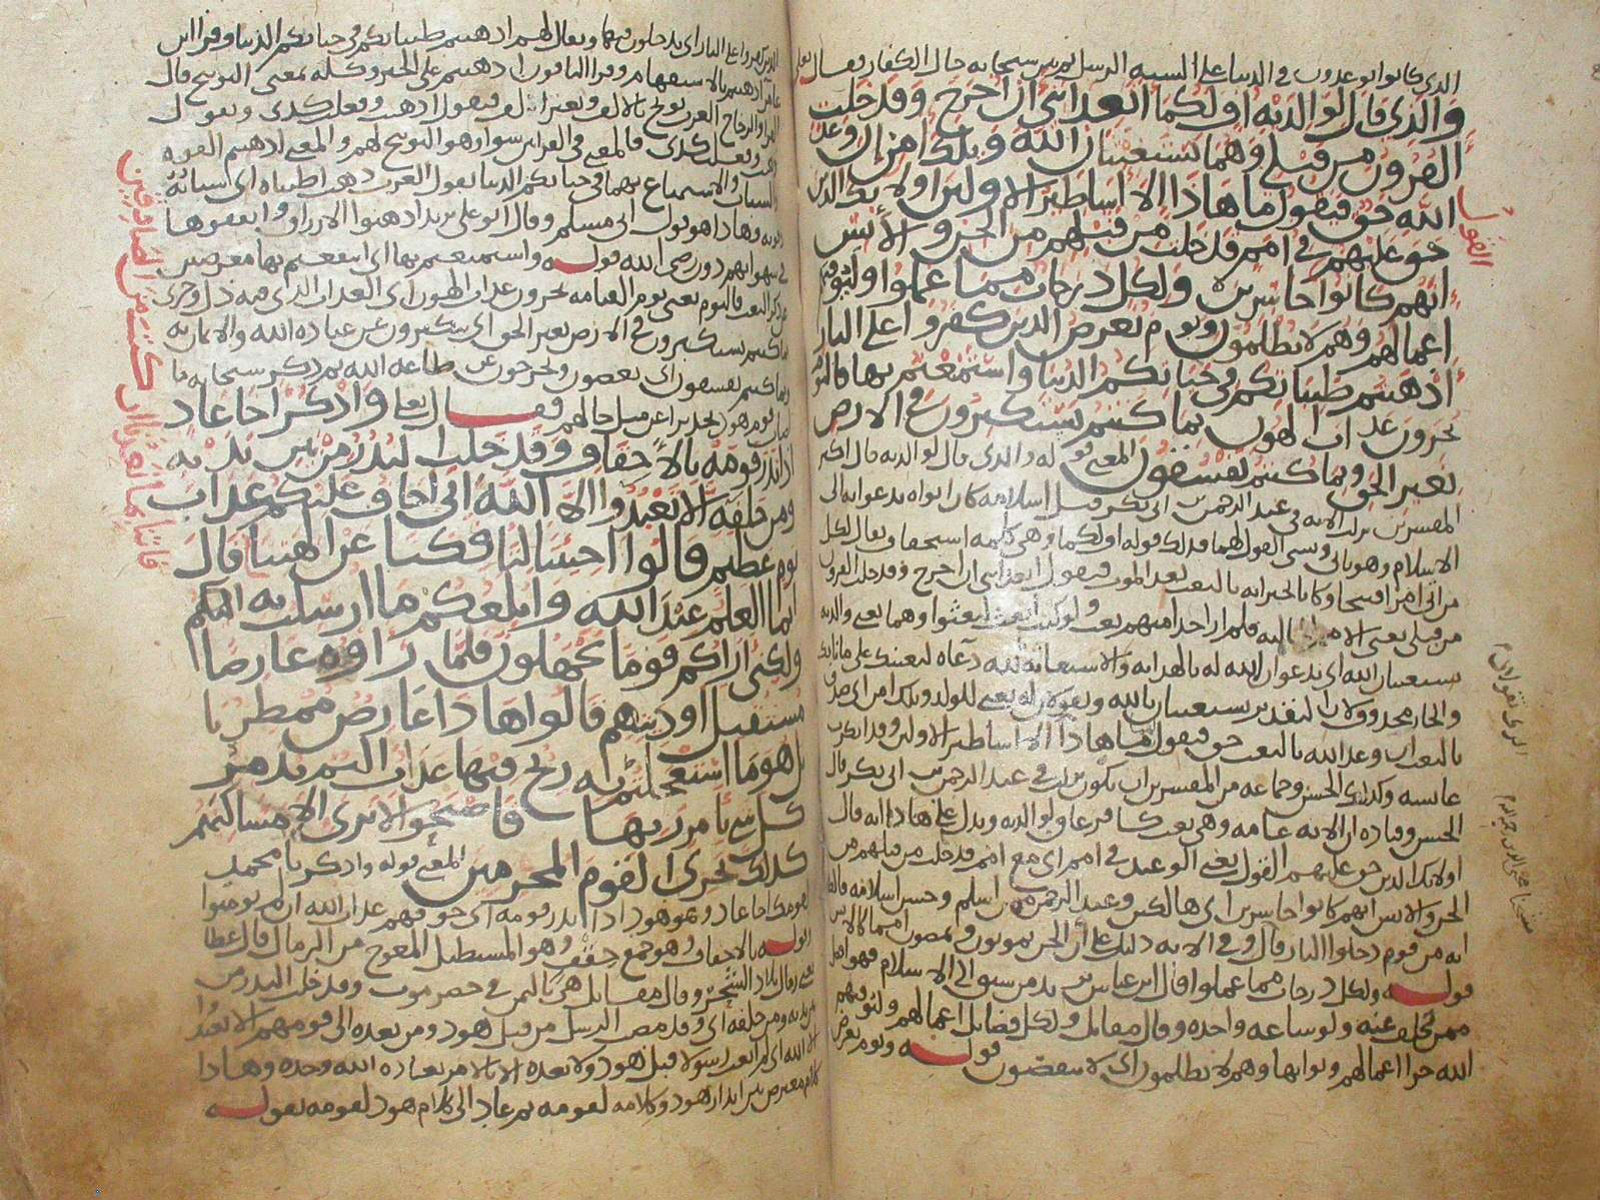 الذي كانوا يوعدون في الدنيا على السنه الرسل ثم بين سبحانه حال الكفار فقال تعالى
والذي قال لوالديه اف لكما اتعدانني ان اخرج وقد خلت
القرون من قبلي وهما يستغيثان الله ويلك امن ان وعد
الله حق فيقول ما هاذا الا اساطير الاولين اولايك الذين
حق عليهم القول
في امم قد خلت من قبلهم من الجن والانس
انهم كانوا خاسرين ولكل درجات مما عملوا وليوفيهم
اعمالهم وهم لا يظلمون ويوم يعرض الذين كفروا على النار
اذهبتم طيباتكم في حياتكم الدنيا واستمتعتم بها فاليوم
تجزون عذاب الهون بما كنتم تستكبرون في الارض
بغير الحق وبما كنتم تفسقون المعنى قوله والذي قال لوالديه قال اكثر
المفسرين نزلت الايه في عبد الرحمن بن ابي بكر قبل اسلامه كان ابواه يدعوانه الى
الاسلام وهو يابى ويسيء القول لهما فذلك قوله اف لكما وهي كلمه استخفاف يقال لكل
بالبعث بعد الموت فيقول اتعدانني ان اخرج وقد خلت القرون
من قبلي يعني الامم الخاليه فلم ار احدا منهم بعث
وهما يعني والديه
يستغيثان الله اي يدعوان الله له بالهدايه والاستغاثه بالله دعاه ليغيثك على ما نابك
والجار محذوف لان التقدير يستغيثان بالله ويقولان له يعني للولد ويلك امن اي صدق
بالبعث ان وعد الله بالبعث حق فيقول ما هاذا الا اساطير الاولين وقد انكرت
عايشه وكذلك الحسن وجماعه من المفسرين ان يكون نزلت في عبد الرحمن بن ابي بكر قال
الحسن وقتاده ان الايه عامه وهي نعت كافر عاق لوالديه ويدل على هاذا انه قال
اولائك الذين حق عليهم القول يعني الوعيد في امم اي مع امم قد خلت من قبلهم من
الجن والانس انهم كانوا خاسرين اي هالكين وعبد الرحمن ممن اسلم وحسن اسلامه
قال وفي الايه دليل على ان الجن يموتون
قوله ولكل درجات مما عملوا قال ابن عباس يريد من سبق الى الاسلام فهو افضل
ممن تخلف عنه ولو ساعه واحده وقال مقاتل ولكل فضايل اعمالهم وليوفيهم
الله جزا اعمالهم وثوابها وهم لا يظلمون اي لا ينقصون قوله ويوم يعرض
الذين كفروا على النار اي يدخلون فيها ويقال لهم اذهبتم طيباتكم في حياتكم الدنيا وقرا ابن
عامر ااذهبتم بالاستفهام وقرا الباقون اذهبتم على الخبر وكله بمعنى التوبيخ قال
الفرا والزجاج العرب توبخ بالالف وبغير الف فيقول اذهبت وفعلت كذى ويقول
فالمعنى في القراتين سوا وهو التوبيخ لهم والمعنى اذهبتم القوه
والشباب والاستمتاع بهما في حياتكم الدنيا تقول العرب ذهب اطيباه اي شبابه
وقوته وهاذا هو قول ابي مسلم وقال ابو علي يريد اذهبتوا الارزاق وانفقوها
في شهواتهم دون رضى الله قوله واستمتعتم بها اي انتفعتم بها معرضين
عن ذكر البعث فاليوم يعني يوم القيامه تجزون عذاب الهون اي العذاب الذي فيه ذل وخزي
بما كنتم تستكبرون في الارض بغير الحق اي تتكبرون عن عباده الله والايمان به
وبما كنتم تفسقون اي تعصون وتخرجون عن طاعه الله ثم ذكر سبحانه
فقال تعالى واذكر اخا عاد
اذ انذر قومه بالاحقاف وقد خلت النذر من بين يديه
ومن خلفه الا تعبدوا الا الله اني اخاف عليكم عذاب
يوم عظيم قالوا اجيتنا لتافكنا عن الهتنا
فاتنا بما تعدنا ان كنت من الصادقين
قال
انما العلم عند الله وابلغكم ما ارسلت به اليكم
ولكني اراكم قوما تجهلون فلما راوه عارضا
مستقبل اوديتهم قالوا هاذا عارض ممطرنا
بل هو ما استعجلتم به ريح فيها عذاب اليم تدمر
كل شي بامر ربها فاصبحوا لا ترى الا مساكنهم
كذلك نجزي القوم المجرمين المعنى قوله واذكر يا محمد
لقومك اخا عاد وهو هود اذ انذر قومه اي خوفهم عذاب الله ان لم يومنوا
قوله بالاحقاف وهو جمع حقف وهو المستطيل المعوج من الرمال قال عطا
يعني رمال بلاد الشحر وقال مقاتل هي باليمن في حضرموت وقد خلت النذر من
بين يديه ومن خلفه اي وقد مضت الرسل من قبل هود ومن بعده الى قومهم الا تعبدوا
الا الله اي لم ابعث رسولا قبل هود ولا بعده الا بالامر بعباده الله وحده وهاذا
كلام معترض بين انذار هود وكلامه لقومه ثم عاد الى كلام هود لقومه بقوله